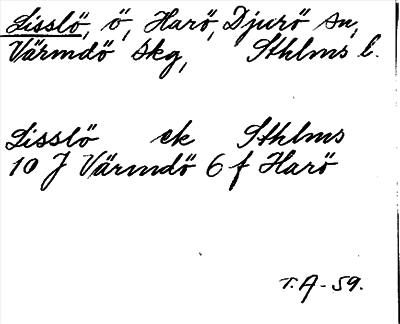 Lisslö, ö, Harö, Djurö sn,
Värmdö skg, Sthlms l.
Lisslö ek Sthlms
10 J Värmdö 6 f Harö
T.A-59.